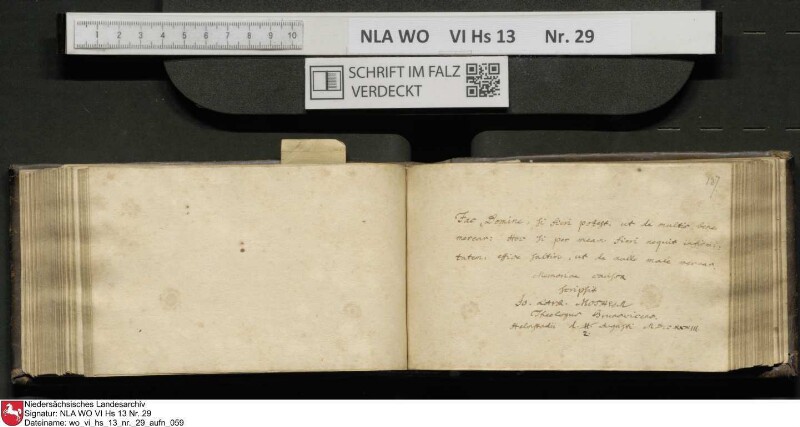 1 2 3 4 5 6 7 8 9 10
NLA WO VI Hs 13 Nr. 29
SCHRIFT IM FALZ
VERDECKT
Fac, Domine, si fieri potest, ut de multis bene
merear: Hoc si per meam fieri nequit
tatem, effice saltim, ut de nullo male merear.
Memoriae causa
scripsit
Jo. Laur.
Theologus
Helmstadii d. Augusti
Niedersächsisches Landesarchiv
Signatur: NLA WO VI Hs 13 Nr. 29
Dateiname: wo_vi_hs_13_nr._29_aufn_059